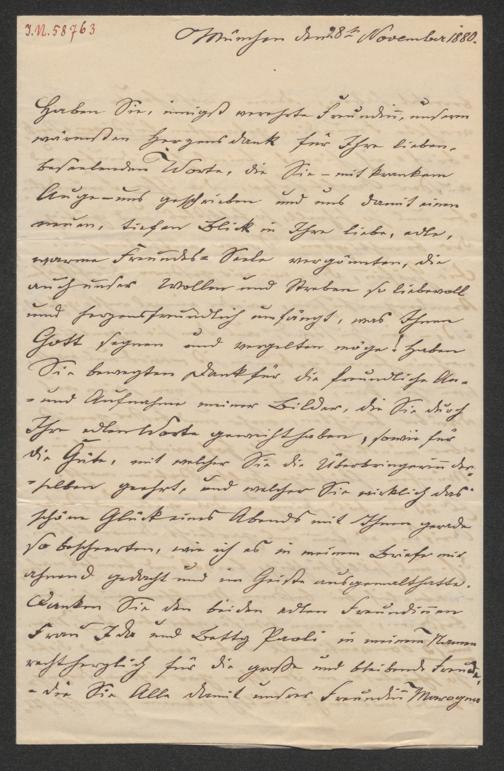 J.N. 58763
München den 28ten November 1880.
Haben Sie, innigst verehrte Freundin, unsern
wärmsten Herzensdank für Ihre lieben,
beseelenden Worte, die Sie – mit krankem
Auge – uns geschrieben und uns damit einen
neuen, tiefen Blick in Ihre liebe, edle,
warme Freundes-Seele vergönnten, die
auch unser Wollen und Streben so liebevoll
und herzensfreundlich umfängt, was Ihnen
Gott segnen und vergelten möge! Haben
Sie bewegten Dank für die freundliche An-
- und Aufnahme meiner Bilder, die Sie durch
Ihre edlen Worte geweiht haben, sowie für
die Güte, mit welcher Sie die Überbringerin der-
-selben geehrt, und welcher Sie wirklich das
schöne Glück eines Abends mit Ihnen gerade
so bescheerten, wie ich es in meinem Briefe mit
ahnend gedacht und im Geiste ausgemalt hatte.
Danken Sie den beiden edlen Freundinnen
Frau Ida und Betty Paoli in meinem Namen
recht herzlich für die große und bleibende Freude,
- die Sie Alle damit unsrer Freundin